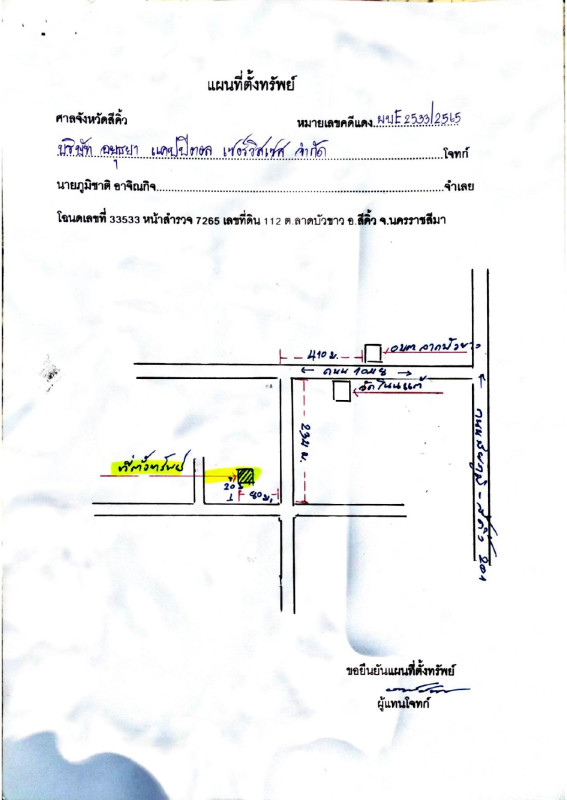 แผนที่ตั้งทรัพย์
ศาลจังหวัดสีคิ้ว หมายเลขคดีแดง ผบE 2533/2565
บริษัท อยุธยา แคปปิตอล เซอร์วิสเซส จำกัด โจทก์
นายภูมิชาติ อาจิณกิจ จำเลย
โฉนดเลขที่ 33533 หน้าสำรวจ 7265 เลขที่ดิน 112 ต.ลาดบัวขาว อ.สีคิ้ว จ.นครราชสีมา
410 ม.
อบต ลาดบัวขาว
ถนน
วัดโนนแต้
234 ม.
ที่ตั้งทรัพย์
20 ม.
80 ม.
ถนนชัยภูมิ - สีคิ้ว 201
ขอยืนยันแผนที่ตั้งทรัพย์
ผู้แทนโจทก์